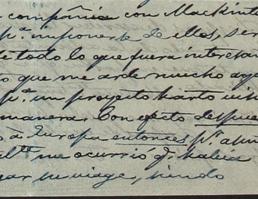 compañia con Mackint
pª imponerte de ellos, ser
te todo lo que fuera interesan
to que me arde mucho
pª un proyecto harto
manera. Con efecto despues
Europa entonces pª
me ocurrió q. habia
viage, siendo